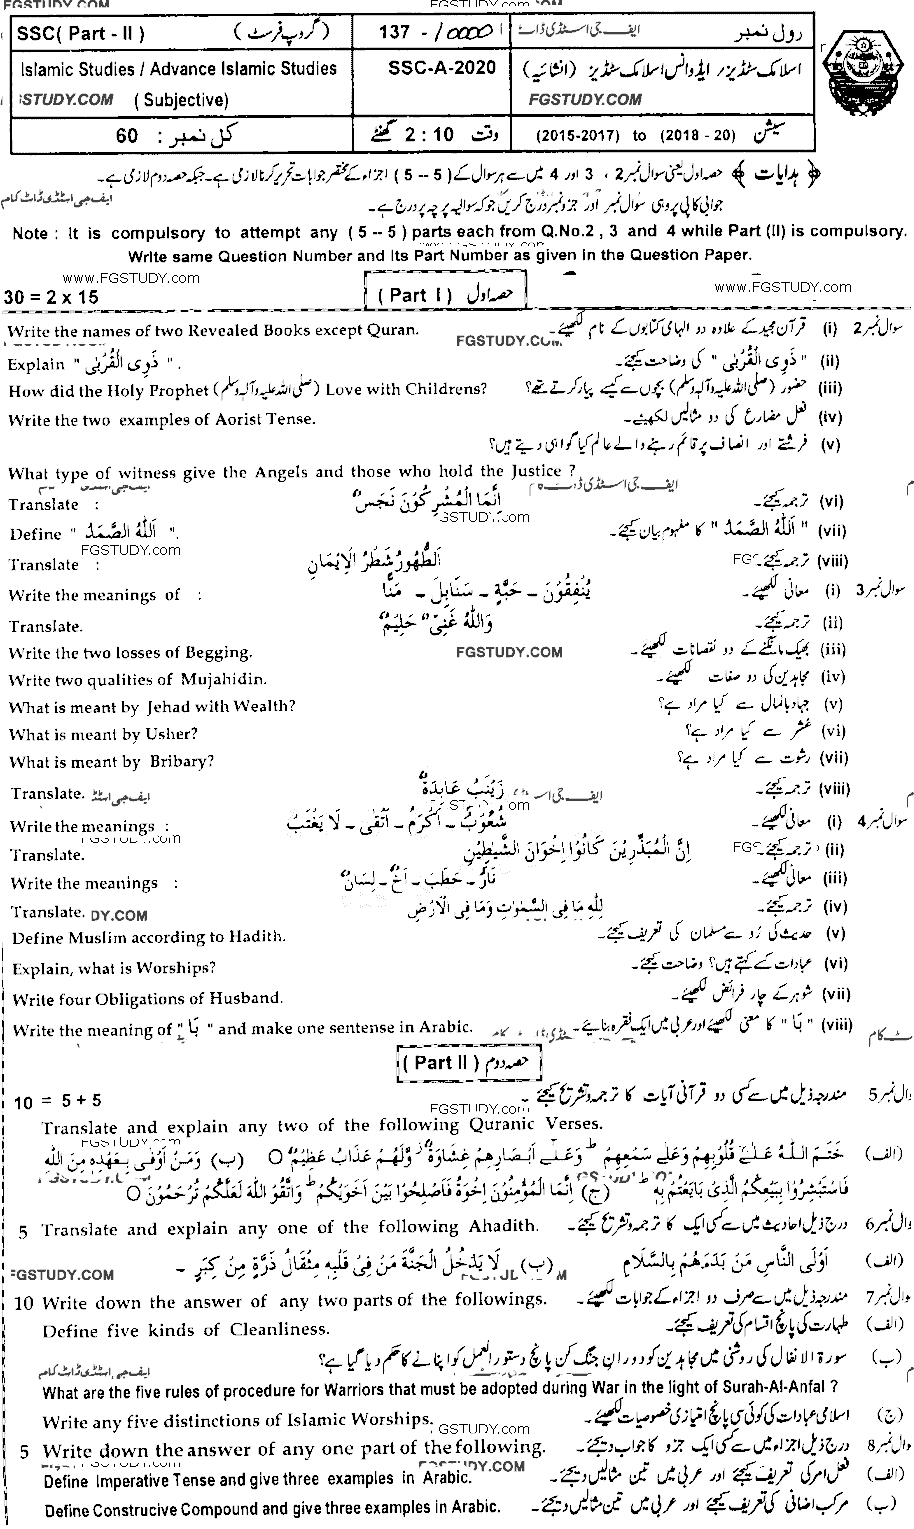 FGSTUDY.COM FGSTUDY.com
SSC( Part - II ) (گروپ فرسٹ) 137 رول نمبر
Islamic Studies / Advance Islamic Studies SSC-A-2020 اسلامک سٹڈیز / ایڈوانس اسلامک سٹڈیز (انشائیہ)
( Subjective) FGSTUDY.COM
کل نمبر : 60 وقت 2 : 10 گھنٹے سیشن (2015-2017) to (2018 - 20)
﴿ ہدایات ﴾ حصہ اول یعنی سوال نمبر 2 ، 3 اور 4 میں سے ہر سوال کے ( 5 -- 5 ) اجزاء کے مختصر جوابات تحریر کرنا لازمی ہے۔ جبکہ حصہ دوم لازمی ہے۔
جوابی کاپی پر وہی سوال نمبر اور جز و نمبر درج کریں جو کہ سوالیہ پرچہ پر درج ہے۔ ایف جی اسٹڈی ڈاٹ کام
Note : It is compulsory to attempt any ( 5 -- 5 ) parts each from Q.No.2 , 3 and 4 while Part (II) is compulsory.
Write same Question Number and Its Part Number as given in the Question Paper.
www.FGSTUDY.com www.FGSTUDY.com
30 = 2 x 15 ( Part I ) حصہ اول
Write the names of two Revealed Books except Quran. FGSTUDY.COM سوال نمبر 2 (i) قرآن مجید کے علاوہ دو الہامی کتابوں کے نام لکھیئے۔
Explain " ذَوِی الْقُرْبٰی " . (ii) " ذَوِی الْقُرْبٰی " کی وضاحت کیجئے۔
How did the Holy Prophet (صلی اللہ علیہ وآلہ وسلم) Love with Childrens? (iii) حضور (صلی اللہ علیہ وآلہ وسلم) بچوں سے کیسے پیار کرتے تھے؟
Write the two examples of Aorist Tense. (iv) فعل مضارع کی دو مثالیں لکھیئے۔
(v) فرشتے اور انصاف پر قائم رہنے والے عالم کیا گواہی دیتے ہیں؟
What type of witness give the Angels and those who hold the Justice ?
Translate : اِنَّمَا الْمُشْرِکُوْنَ نَجَسٌ (vi) ترجمہ کیجئے۔
Define " اَللّٰہُ الصَّمَدُ ". (vii) " اَللّٰہُ الصَّمَدُ " کا مفہوم بیان کیجئے۔
FGSTUDY.com
Translate : اَلطُّهُوْرُ شَطْرُ الْاِیْمَانِ (viii) ترجمہ کیجئے۔
Write the meanings of : یُنْفِقُوْنَ ۔ حَبَّةٍ ۔ سَنَابِلَ ۔ مَنًّا سوال نمبر 3 (i) معانی لکھیئے۔
Translate. وَاللّٰہُ غَنِیٌّ حَلِیْمٌ (ii) ترجمہ کیجئے۔
Write the two losses of Begging. FGSTUDY.COM (iii) بھیک مانگنے کے دو نقصانات لکھیئے۔
Write two qualities of Mujahidin. (iv) مجاہدین کی دو صفات لکھیئے۔
What is meant by Jehad with Wealth? (v) جہاد بالمال سے کیا مراد ہے؟
What is meant by Usher? (vi) عُشر سے کیا مراد ہے؟
What is meant by Bribary? (vii) رشوت سے کیا مراد ہے؟
Translate. زَیْنَبُ عَابِدَةٌ (viii) ترجمہ کیجئے۔
Write the meanings : شُعُوْبٌ ۔ اَکْرَمُ ۔ اَتْقٰی ۔ لَا یَغْتَبْ سوال نمبر 4 (i) معانی لکھیئے۔
Translate. اِنَّ الْمُبَذِّرِیْنَ کَانُوْا اِخْوَانَ الشَّیٰطِیْنِ (ii) ترجمہ کیجئے۔
Write the meanings : نَارٌ ۔ حَطَبٌ ۔ اَخٌ ۔ لِسَانٌ (iii) معانی لکھیئے۔
Translate. لِلّٰہِ مَا فِی السَّمٰوٰتِ وَمَا فِی الْاَرْضِ (iv) ترجمہ کیجئے۔
Define Muslim according to Hadith. (v) حدیث کی رُو سے مسلمان کی تعریف کیجئے۔
Explain, what is Worships? (vi) عبادات کسے کہتے ہیں؟ وضاحت کیجئے۔
Write four Obligations of Husband. (vii) شوہر کے چار فرائض لکھیئے۔
Write the meaning of " یَا " and make one sentence in Arabic. (viii) " یَا " کا معنی لکھیئے اور عربی میں ایک فقرہ بنایئے۔
( Part II ) حصہ دوم
10 = 5 + 5 مندرجہ ذیل میں سے کسی دو قرآنی آیات کا ترجمہ و تشریح کیجئے۔
FGSTUDY.com
Translate and explain any two of the following Quranic Verses.
(الف) خَتَمَ اللّٰہُ عَلٰی قُلُوْبِهِمْ وَعَلٰی سَمْعِهِمْ ؕ وَعَلٰی اَبْصَارِهِمْ غِشَاوَةٌ وَّلَهُمْ عَذَابٌ عَظِیْمٌ ○ (ب) وَمَنْ اَوْفٰی بِعَهْدِہٖ مِنَ اللّٰہِ
فَاسْتَبْشِرُوْا بِبَیْعِکُمُ الَّذِیْ بَایَعْتُمْ بِہٖ ؕ (ج) اِنَّمَا الْمُؤْمِنُوْنَ اِخْوَةٌ فَاَصْلِحُوْا بَیْنَ اَخَوَیْکُمْ ۚ وَاتَّقُوا اللّٰہَ لَعَلَّکُمْ تُرْحَمُوْنَ ○
5 Translate and explain any one of the following Ahadith. درج ذیل احادیث میں سے کسی ایک کا ترجمہ و تشریح کیجئے۔
(الف) اَوْلَی النَّاسِ مَنْ بَدَءَهُمْ بِالسَّلَامِ (ب) لَا یَدْخُلُ الْجَنَّةَ مَنْ فِیْ قَلْبِہٖ مِثْقَالُ ذَرَّةٍ مِنْ کِبَرٍ ۔
FGSTUDY.COM
10 Write down the answer of any two parts of the followings. مندرجہ ذیل میں سے صرف دو اجزاء کے جوابات لکھیئے۔
Define five kinds of Cleanliness. (الف) طہارت کی پانچ اقسام کی تعریف کیجئے۔
(ب) سورۃ الانفال کی روشنی میں مجاہدین کو دورانِ جنگ کن پانچ دستور العمل کو اپنانے کا حکم دیا گیا ہے؟
What are the five rules of procedure for Warriors that must be adopted during War in the light of Surah-Al-Anfal ?
Write any five distinctions of Islamic Worships. (ج) اسلامی عبادات کی کوئی سی پانچ امتیازی خصوصیات لکھیئے۔
5 Write down the answer of any one part of the following. درج ذیل اجزاء میں سے کسی ایک جزو کا جواب دیجئے۔
Define Imperative Tense and give three examples in Arabic. (الف) فعل امر کی تعریف کیجئے اور عربی میں تین مثالیں دیجئے۔
Define Construcive Compound and give three examples in Arabic. (ب) مرکب اضافی کی تعریف کیجئے اور عربی میں تین مثالیں دیجئے۔